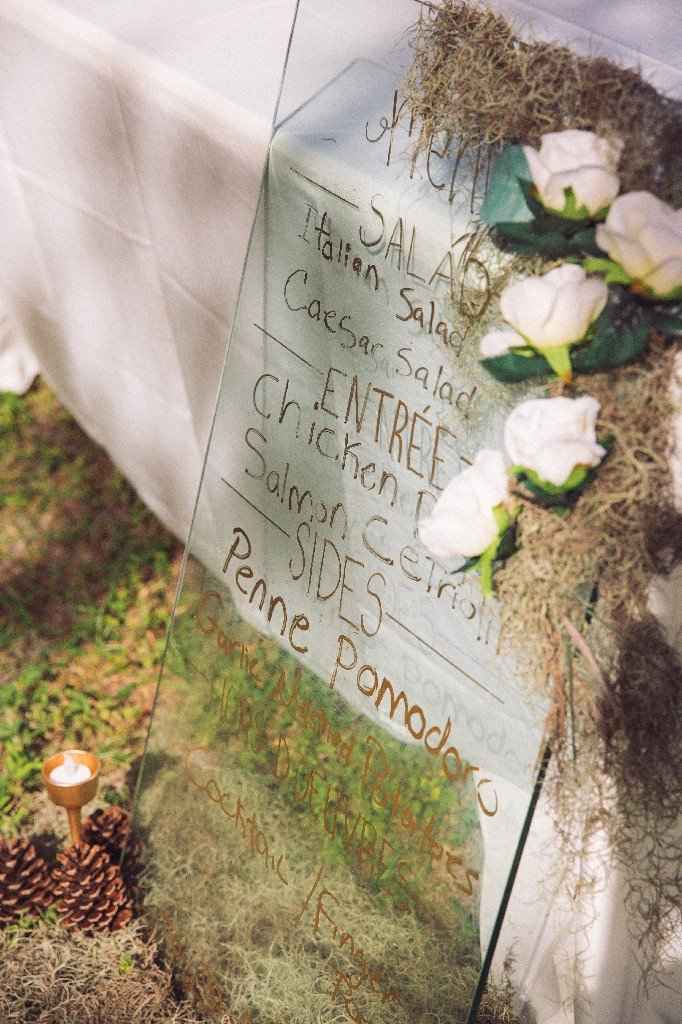 Menu
SALAD
Italian Salad
Caesar Salad
ENTRÉE
Chicken
Salmon Cetrioli
SIDES
Penne Pomodoro
Garlic Mashed Potatoes
Cocktail / Finger